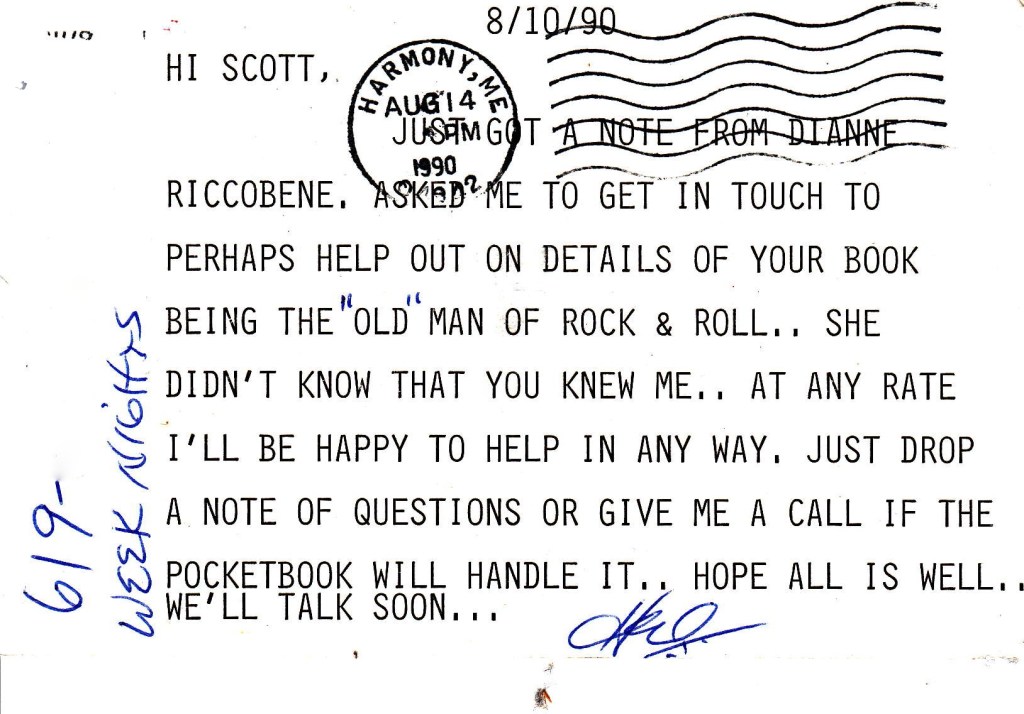 8/10/90
HI SCOTT,
HARMONY, ME
AUG 14
PM
1990
JUST GOT A NOTE FROM DIANNE
RICCOBENE. ASKED ME TO GET IN TOUCH TO
PERHAPS HELP OUT ON DETAILS OF YOUR BOOK
BEING THE "OLD" MAN OF ROCK & ROLL.. SHE
DIDN'T KNOW THAT YOU KNEW ME.. AT ANY RATE
I'LL BE HAPPY TO HELP IN ANY WAY. JUST DROP
A NOTE OF QUESTIONS OR GIVE ME A CALL IF THE
POCKETBOOK WILL HANDLE IT.. HOPE ALL IS WELL..
WE'LL TALK SOON...
619-
WEEK NIGHTS